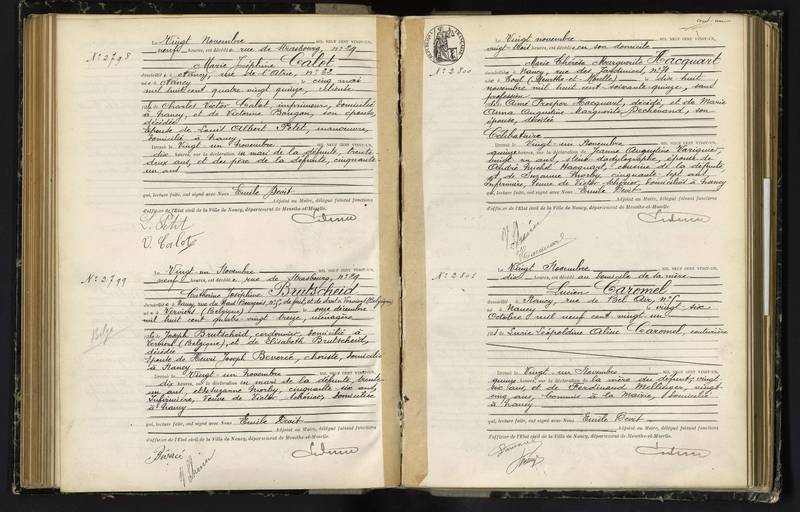 Nº 2798
Le Vingt Novembre MIL NEUF CENT VINGT-UN,
neuf heures, est décédé e rue de Strasbourg, nº 29
Marie Joséphine Calot
domiciliée à Nancy, rue de l'Atrie, nº 22
née à Nancy le cinq mai
mil huit cent quatre vingt quinze,
de Charles Victor Calot, imprimeur, domicilié
à Nancy, et de Victorine Bougon, son épouse,
décédée
Epouse de Louis Albert Petit, manœuvre,
domicilié à Nancy
Dressé le Vingt un Novembre MIL NEUF CENT VINGT-UN,
dix heures, sur la déclaration du mari de la défunte, trente
deux ans, et du père de la défunte, cinquante
un ans
qui, lecture faite, ont signé avec Nous Emile
Adjoint au Maire, délégué faisant fonctions
d'officier de l'Etat civil de la Ville de Nancy, département de Meurthe-et-Moselle.
L. Petit
V. Calot
Nº 2799
Le Vingt un Novembre MIL NEUF CENT VINGT-UN,
neuf heures, est décédé e rue de Strasbourg, nº 29
Catherine Joséphine Brutscheid
domiciliée à Nancy, rue du Haut Bourgeois, nº 5, de fait, et de droit à Verviers (Belgique)
née à Verviers (Belgique) le onze décembre
mil huit cent quatre vingt treize, ménagère
Belge
de Joseph Brutscheid, cordonnier, domicilié à
Verviers (Belgique), et de Elisabeth Brutscheid,
décédée
Epouse de Henri Joseph Beveré, choriste, domicilié
à Nancy
Dressé le Vingt un Novembre MIL NEUF CENT VINGT-UN,
dix heures, sur la déclaration du mari de la défunte, trente
un ans, et Suzanne Morby, cinquante six ans,
infirmière, Veuve de Victor, domiciliée
à Nancy
qui, lecture faite, ont signé avec Nous Emile
Adjoint au Maire, délégué faisant fonctions
d'officier de l'Etat civil de la Ville de Nancy, département de Meurthe-et-Moselle.
Nº 2800
Le Vingt novembre MIL NEUF CENT VINGT-UN,
vingt trois heures, est décédée en son domicile
Marie Thérèse Marguerite Hacquart
domiciliée à Nancy, rue des Jardiniers, nº 71
née à Toul (Meurthe et Moselle) le dix huit
novembre mil huit cent soixante quinze, sans
profession
de Aimé Prosper Hacquart, décédé, et de Marie
Anna Augustine Marguerite Bechenand, son
épouse, décédée
Célibataire
Dressé le Vingt un Novembre MIL NEUF CENT VINGT-UN,
quinze heures, sur la déclaration de Jeanne Augustine
vingt un ans, sténo dactylographe, épouse de
André Michel Hacquart, de la défunte,
et de Suzanne Morby, cinquante sept ans,
infirmière, Veuve de Victor, domiciliées à Nancy
qui, lecture faite, ont signé avec Nous Emile
Adjoint au Maire, délégué faisant fonctions
d'officier de l'Etat civil de la Ville de Nancy, département de Meurthe-et-Moselle.
Nº 2801
Le Vingt Novembre MIL NEUF CENT VINGT-UN,
dix heures, est décédé au domicile de sa mère
Lucien Caromel
domicilié à Nancy, rue de Bel Air, nº 5
né à Nancy le vingt six
Octobre mil neuf cent vingt un
de Lucie Léopoldine Aline Caromel, couturière
Dressé le Vingt un Novembre MIL NEUF CENT VINGT-UN,
quinze heures, sur la déclaration de la mère du défunt, vingt
six ans, et de Ferdinand, vingt
cinq ans, commis à la Mairie, domicilié
à Nancy
qui, lecture faite, ont signé avec Nous Emile
Adjoint au Maire, délégué faisant fonctions
d'officier de l'Etat civil de la Ville de Nancy, département de Meurthe-et-Moselle.